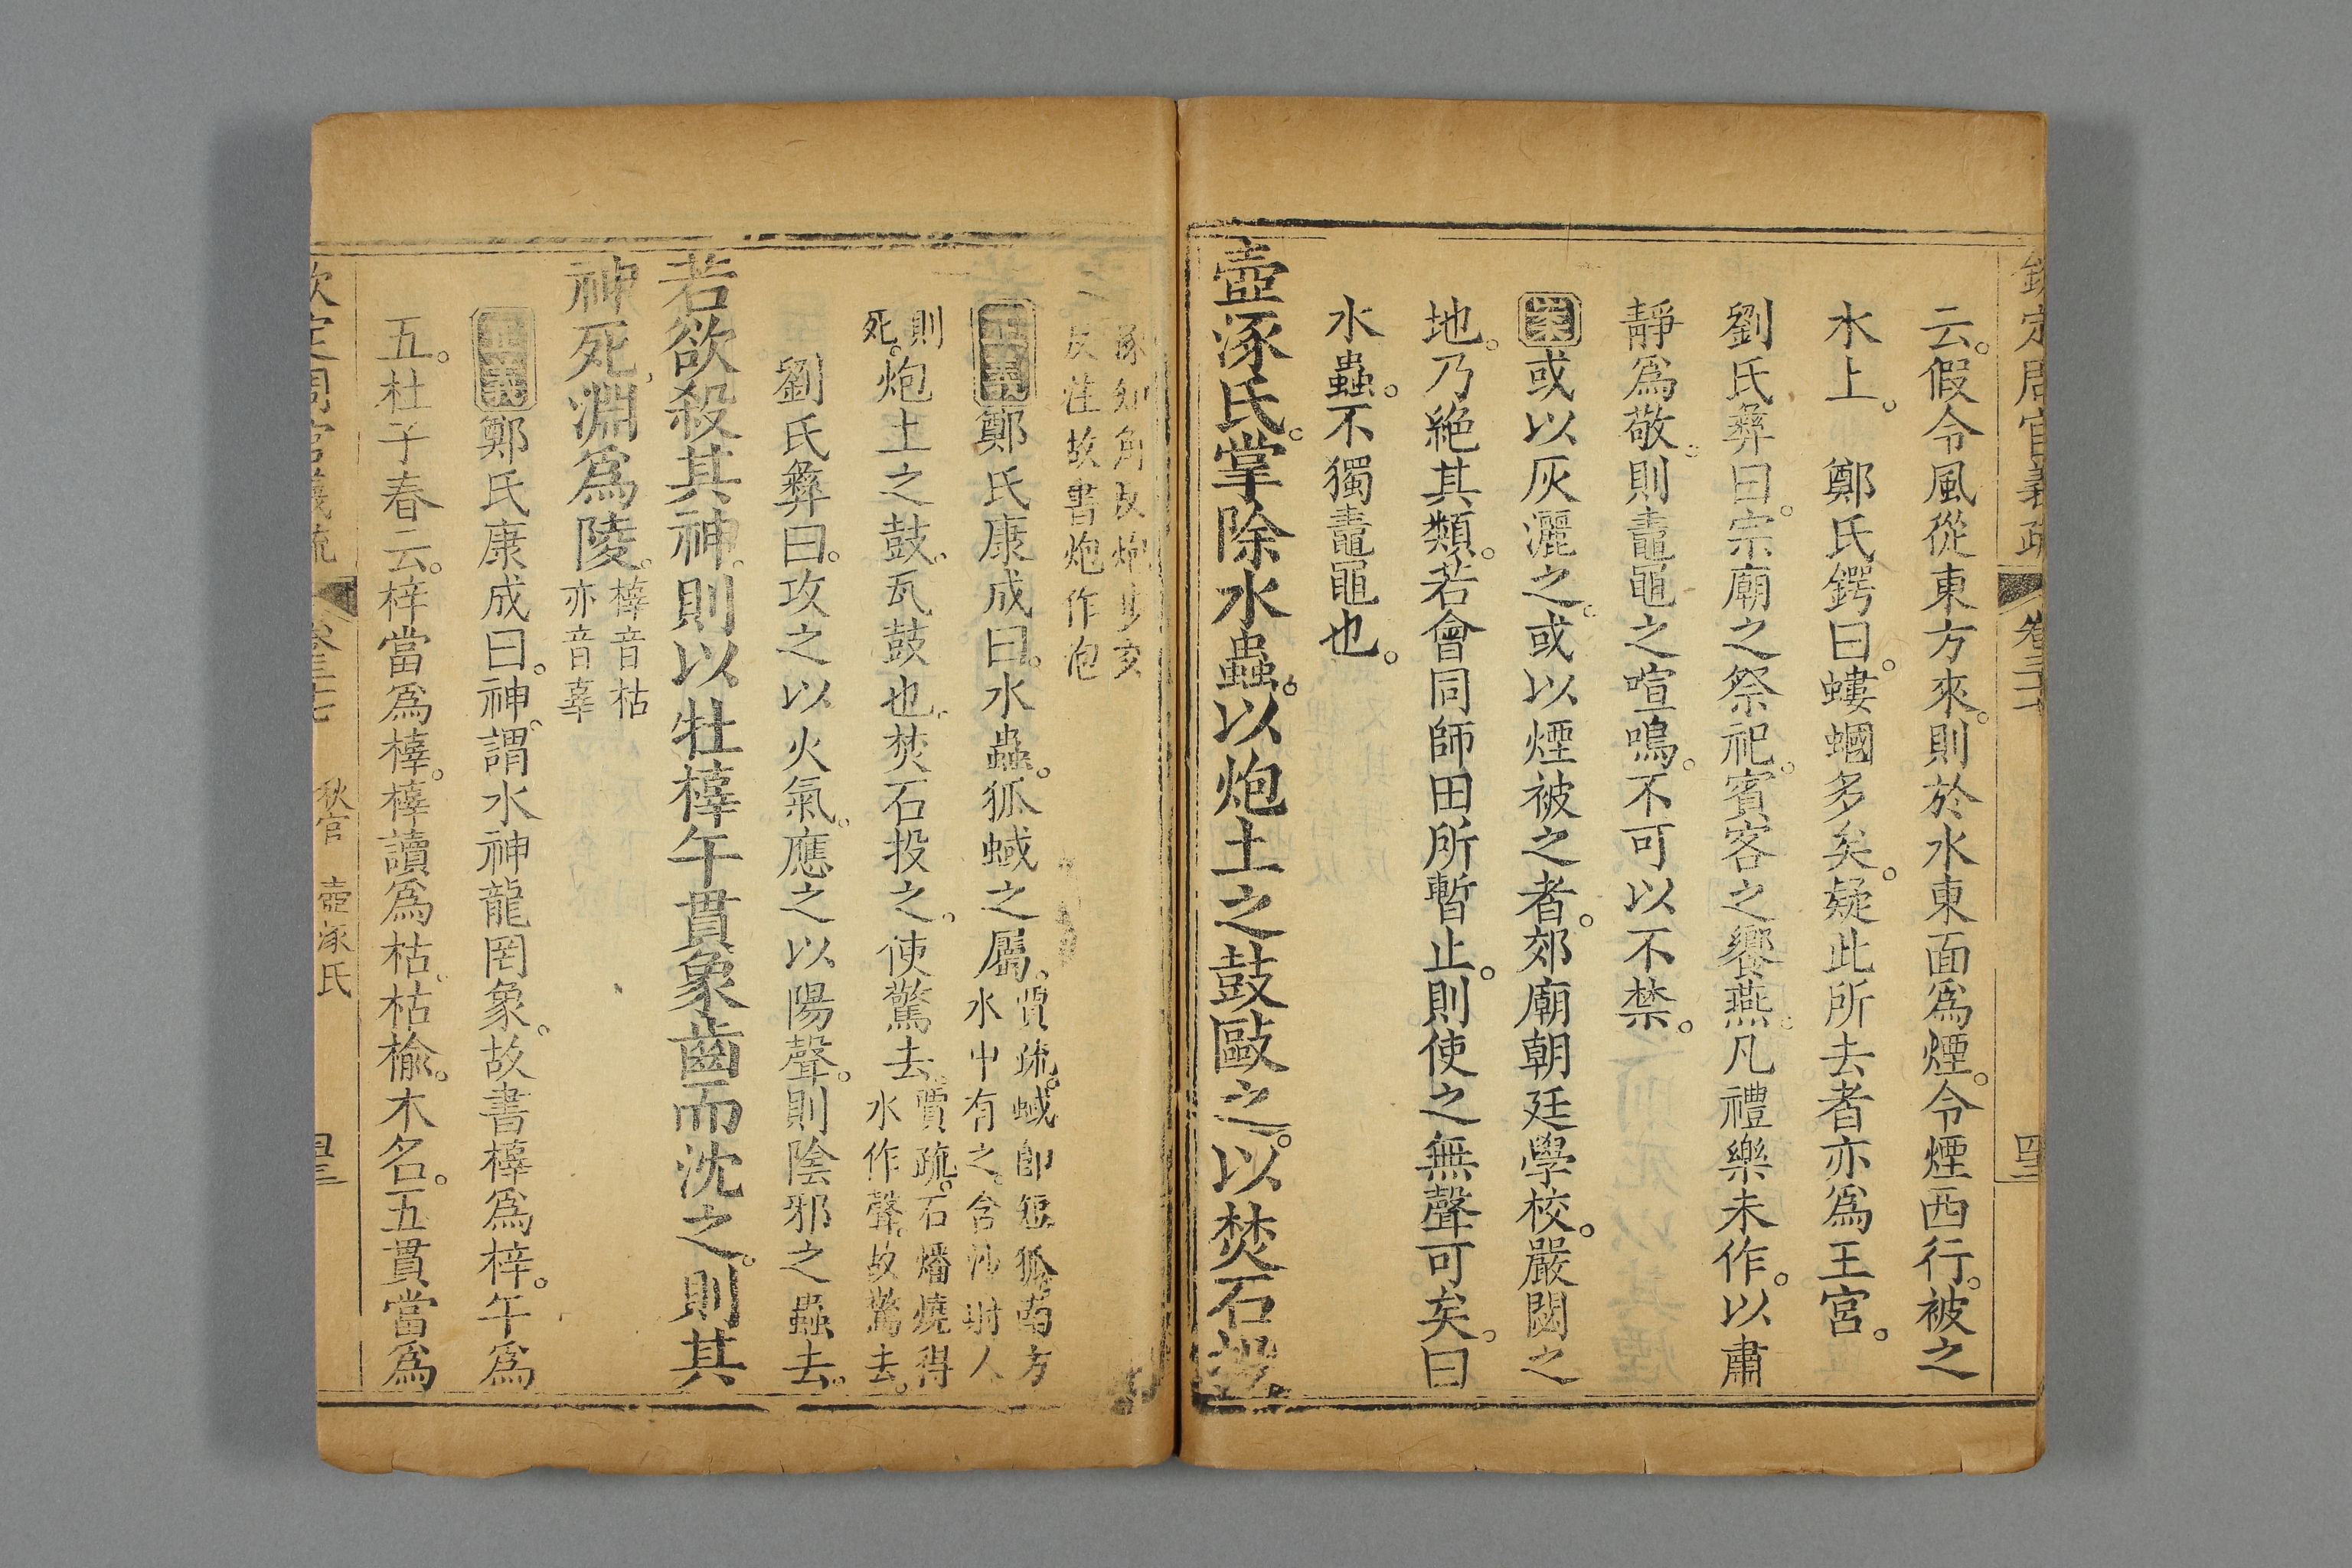 欽定周官義疏 卷三十七 四三
云。假令風從東方來。則於水東面爲煙。令煙西行。被之
水上。 鄭氏鍔曰。螻蟈多矣。疑此所去者亦爲王宮。
劉氏彝曰。宗廟之祭祀。賓客之饗燕。凡禮樂未作。以肅
靜爲敬。則鼃黽之喧鳴。不可以不禁。
案或以灰灑之。或以煙被之者。郊廟朝廷學校。嚴閟之
地。乃絶其類。若會同師田所暫止。則使之無聲可矣。曰
水蟲。不獨鼃黽也。
壺涿氏。掌除水蟲。以炮土之鼓敺之。以焚石投
之。
涿知角反炮步交
反注故書炮作泡
正義鄭氏康成曰。水蟲。狐蜮之屬。
賈疏。蜮卽短狐。南方
水中有之。含沙射人
則
死。
炮土之鼓。瓦鼓也。焚石投之。使驚去。
賈疏。石燔燒得
水作聲。故驚去。
劉氏彝曰。攻之以火氣。應之以陽聲。則陰邪之蟲去。
若欲殺其神。則以牡橭午貫象齒而沈之。則其
神死。淵爲陵。
橭音枯
亦音辜
正義鄭氏康成曰。神。謂水神龍罔象。故書橭爲梓。午爲
五。杜子春云。梓當爲橭。橭讀爲枯。枯榆。木名。五貫當爲
欽定周官義疏 卷三十七 秋官 壺涿氏 四三